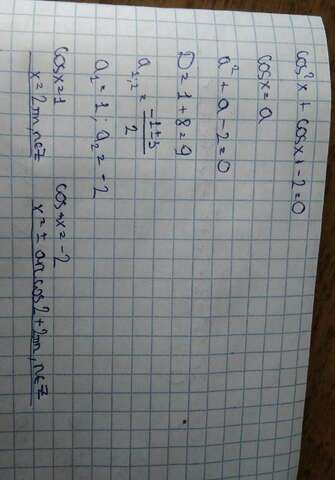 cos²x + cosx - 2 = 0
cosx = a
a² + a - 2 = 0
D = 1 + 8 = 9
a₁,₂ = (-1±3)/2
a₁ = 1; a₂ = -2
cosx = 1 cosx = -2
x = 2πn, n∈Z x = ± arccos2 + 2πn, n∈Z